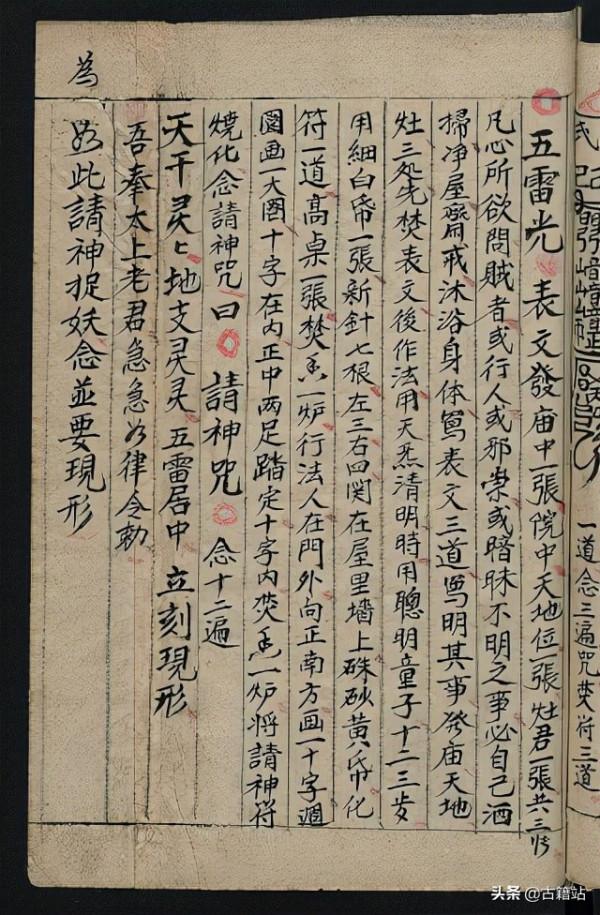 五雷光 表文發庙中一張院中天地位一張灶君一張共三張
凡心所欲問賊者或行人或邪祟或暗昧不明之事必自己洒
掃净屋齋戒沐浴身体寫表文三道寫明其事發庙天地
灶三処先焚表文後作法用天炁清明時用聰明童子十二三歩
用細白帋一張新針七根左三右四関在屋里墻上硃砂黄帋化
符一道高桌一張焚香一炉行法人在門外向正南方画一十字週
圍画一大圈十字在内正中两足踏定十字内焚香一炉將請神符
燒化念請神咒曰 請神咒 念十二遍
天干灵匕地支灵灵 五雷居中 立刻現形
吾奉太上老君急急如律令勅
如此請神捉妖念並要現形
為
一道念三遍咒焚符三道
头条 @古籍站